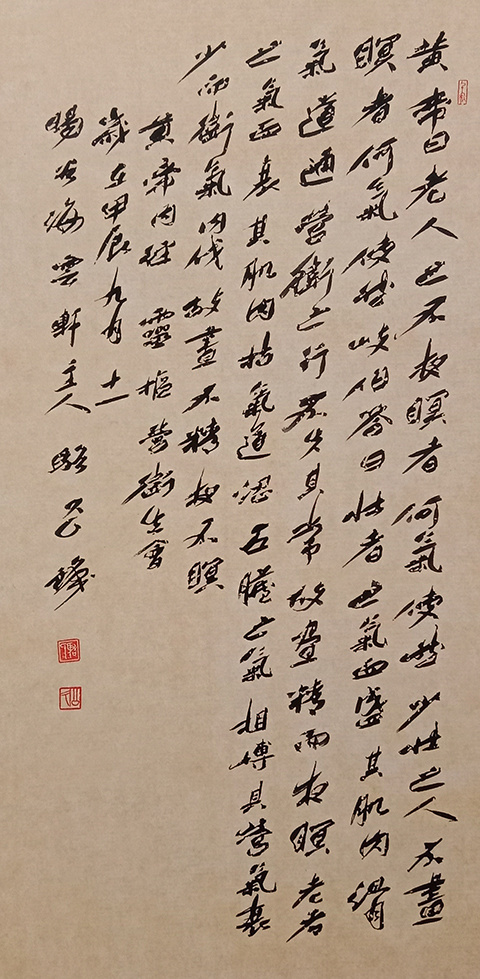 黃帝曰老人之不夜瞑者何氣使然少壯之人不晝
瞑者何氣使然岐伯答曰壯者之氣血盛其肌肉滑
氣道通營衛之行不失其常故晝精而夜瞑老者
之氣血衰其肌肉枯氣道澀五臟之氣相搏其營氣衰
少而衛氣內伐故晝不精夜不瞑
黃帝內經靈樞營衛生會
歲在甲辰九月十一
海雲軒主人